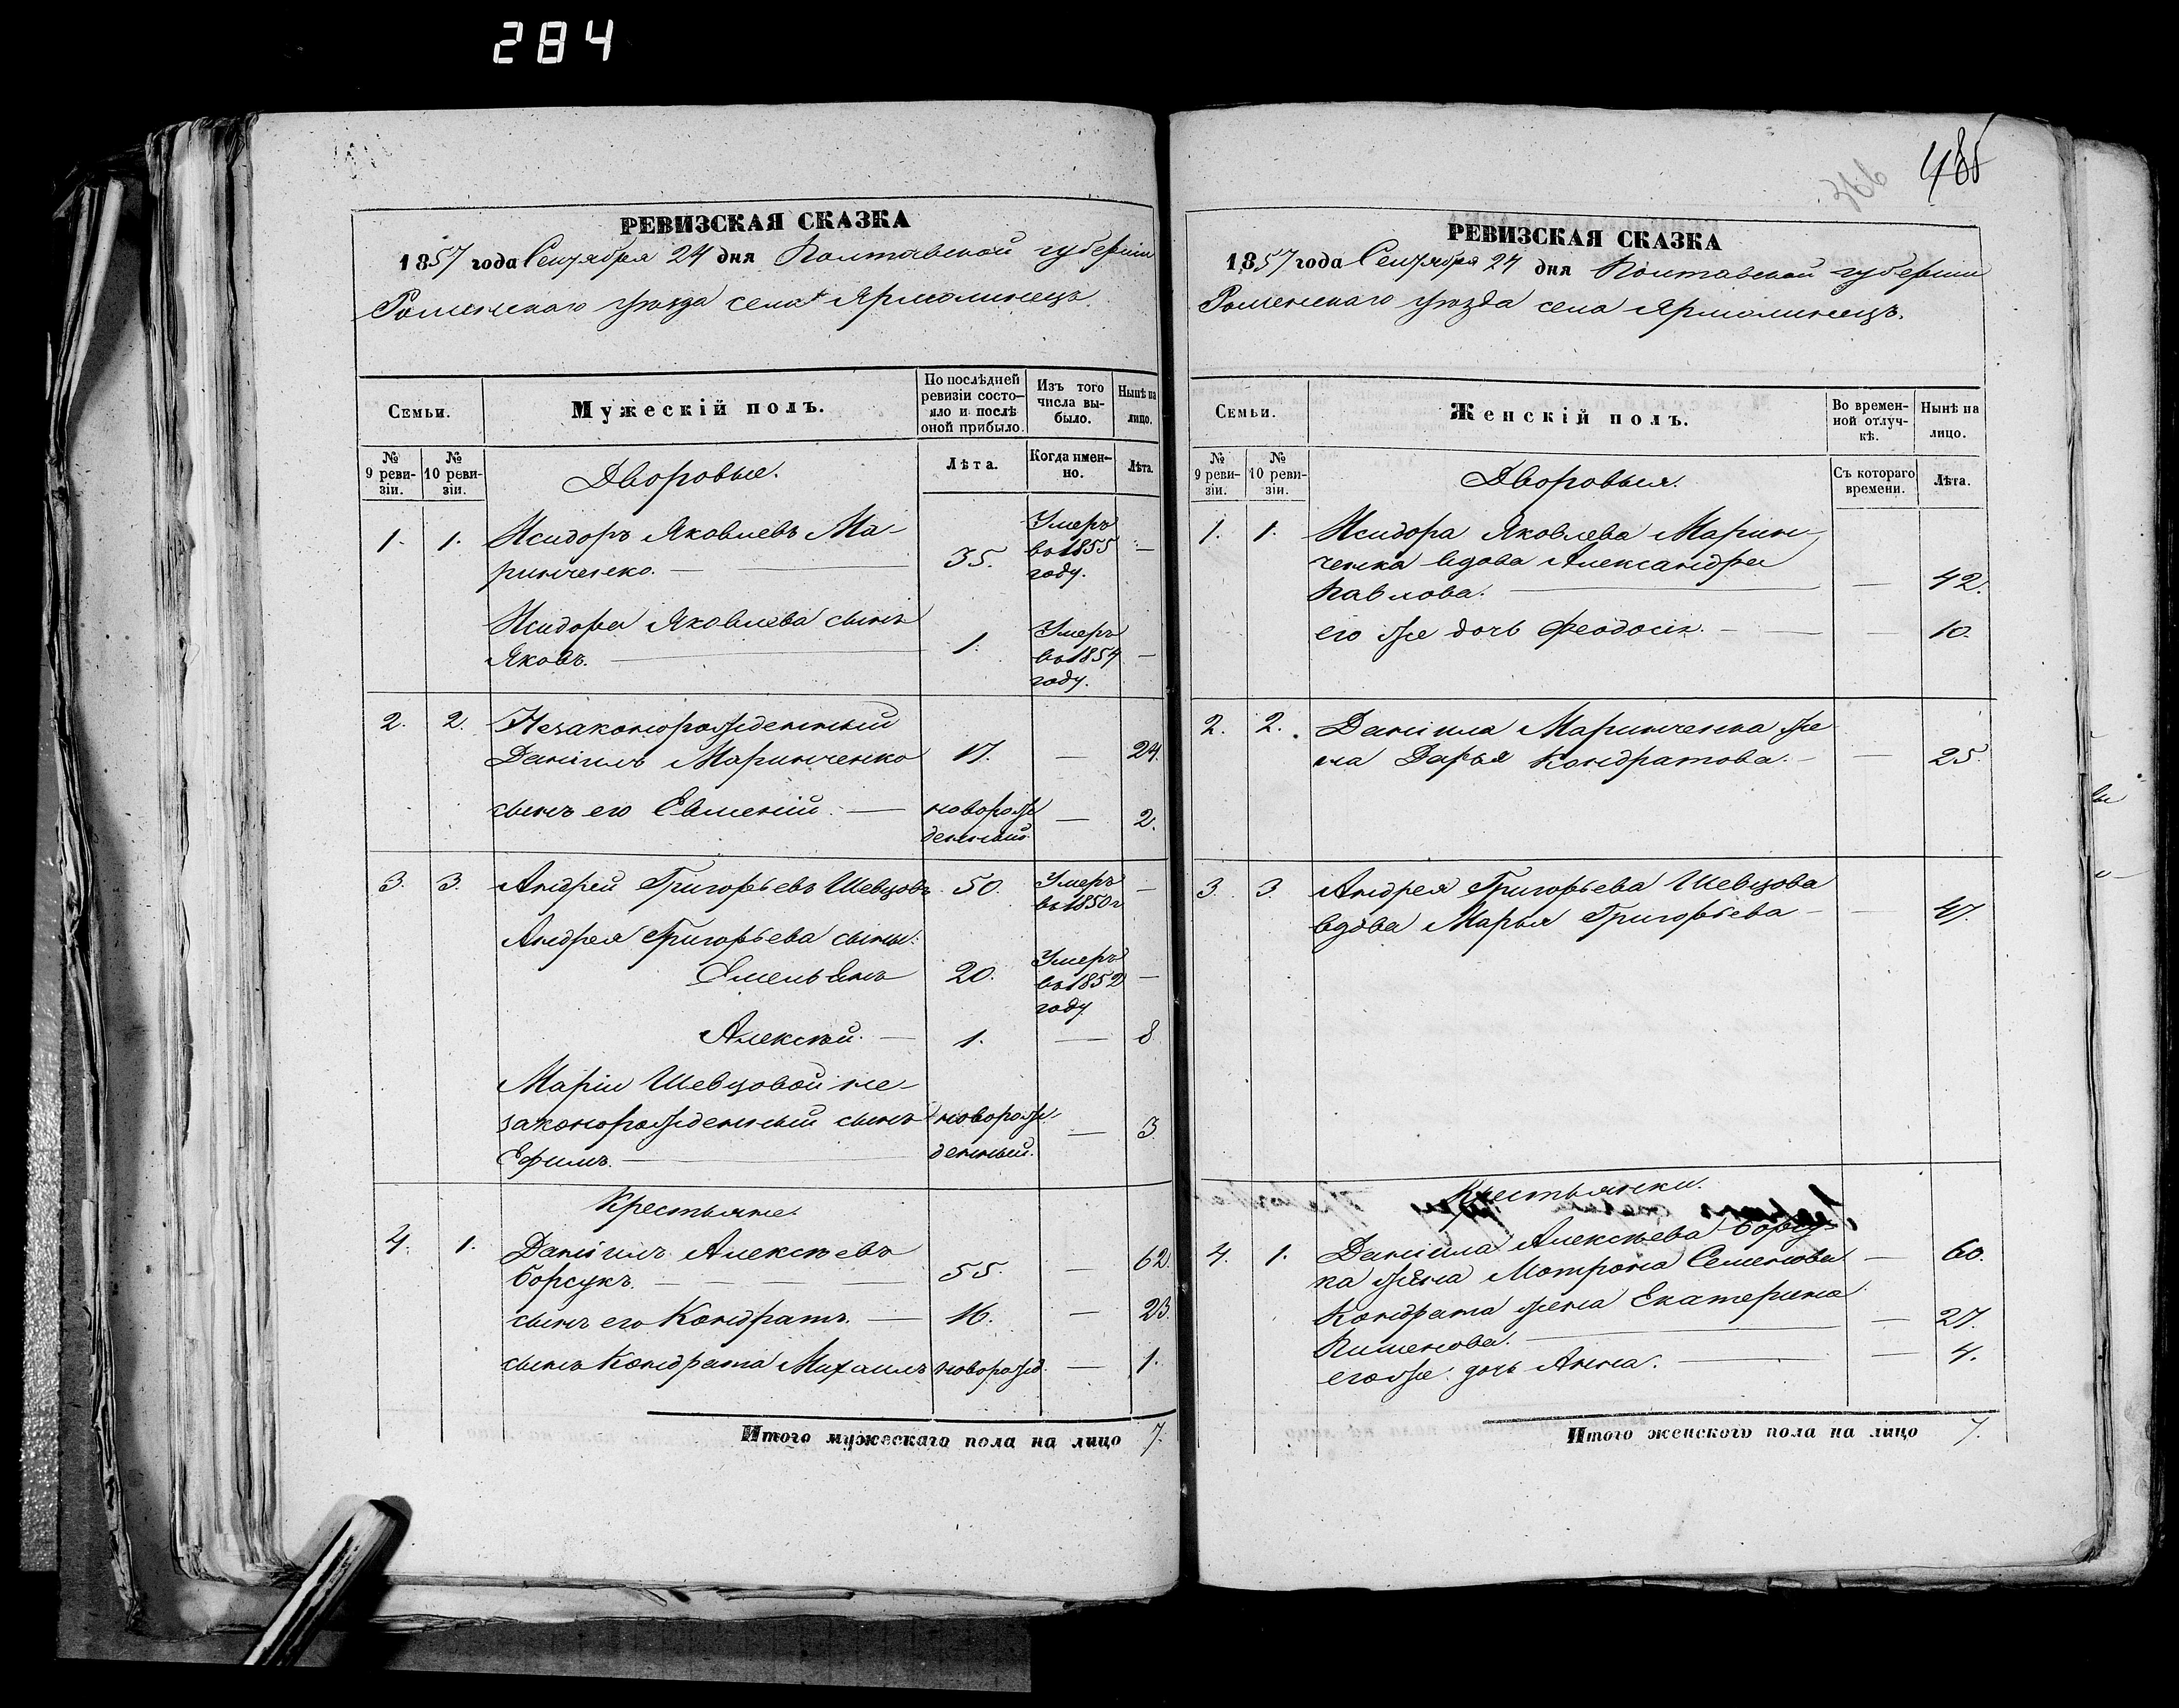 284
РЕВИЗСКАЯ СКАЗКА
1857 года Сентября 24 дня Полтавской губернии
Роменскаго уѣзда села Ярмолинецъ.
Семьи.
Мужескій полъ.
По послѣдней ревизіи состояло и послѣ оной прибыло.
Изъ того числа выбыло.
Нынѣ на лицо.
№ 9 ревизіи.
№ 10 ревизіи.
Дворовые.
Лѣта.
Когда именно.
Лѣта.
1. 1. Исидоръ Яковлевъ Ма-
ринченко. — 35. Умеръ въ 1855 году. —
Исидора Яковлева сынъ
Яковъ. — 1. Умеръ въ 1854 году. —
2. 2. Незаконорожденный
Даніилъ Маринченко 17. — 24.
сынъ его Евменій. — новорожденный. — 2.
3. 3. Андрей Григорьевъ Шевцовъ 50. Умеръ въ 1850 г —
Андрея Григорьева сыны:
Емельянъ 20. Умеръ въ 1852 году —
Алексѣй. — 1. — 8
Маріи Шевцовой не-
законорожденный сынъ новорож-
Ефимъ. — денный. — 3
Крестьяне.
4. 1. Даніилъ Алексѣевъ
Борсукъ. — 55. — 62.
сынъ его Кондратъ. — 16. — 23.
сынъ Кондрата Михаилъ новорожд. — 1.
Итого мужескаго пола на лицо 7.
485
РЕВИЗСКАЯ СКАЗКА
1857 года Сентября 24 дня Полтавской губерніи
Роменскаго уѣзда села Ярмолинецъ.
Семьи.
Женскій полъ.
Во временной отлучкѣ.
Нынѣ на лицо.
№ 9 ревизіи.
№ 10 ревизіи.
Дворовыя.
Съ котораго времени.
Лѣта.
1. 1. Исидора Яковлева Марин-
ченка вдова Александра
Павлова. — — 42.
его же дочь Феодосія. — — 10.
2. 2. Даніила Маринченка же
на Дарья Кондратова. — — 25.
3. 3 Андрея Григорьева Шевцова
вдова Марья Григорьева — — 47.
Крестьянки.
4. 1. Даніила Алексѣева Борсу-
ка жена Мотрона Семенова — 60.
Кондрата жена Екатерина
Пименова. — — 27.
его же дочь Анна. — — 4.
Итого женскаго пола на лицо 7.